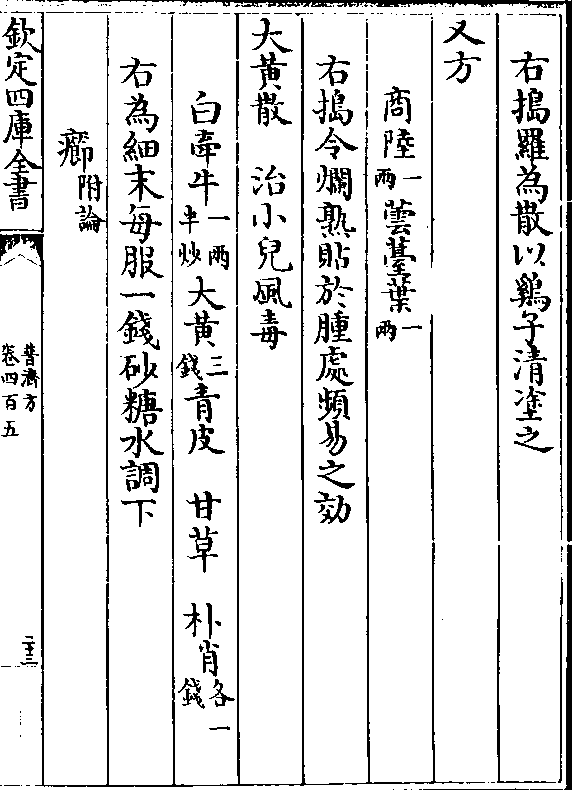 右搗羅為散以鷄子清塗之
又方
商陸一兩蕓薹葉一兩
右搗令爛熟貼於腫處頻易之効
大黄散　治小兒風毒
白牽牛一兩半炒大黄三錢青皮　甘草　朴硝各一錢
右為細末每服一錢砂糖水調下
癤附論
欽定四庫全書
普濟方
卷四百五
二十三